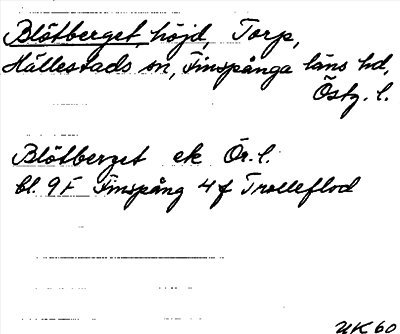 Blötberget, höjd, Torp,
Hällestads sn, Finspånga läns hd,
Östg. l.
Blötberget ek Ör. l.
bl. 9F Finspång 4f Trolleflod
UK 60